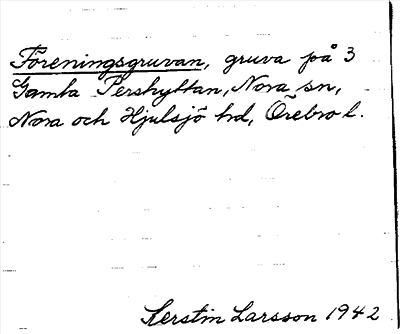 Föreningsgruvan, gruva på 3
Gamla Pershyttan, Nora sn,
Nora och Hjulsjö hd, Örebro l.
Kerstin Larsson 1942